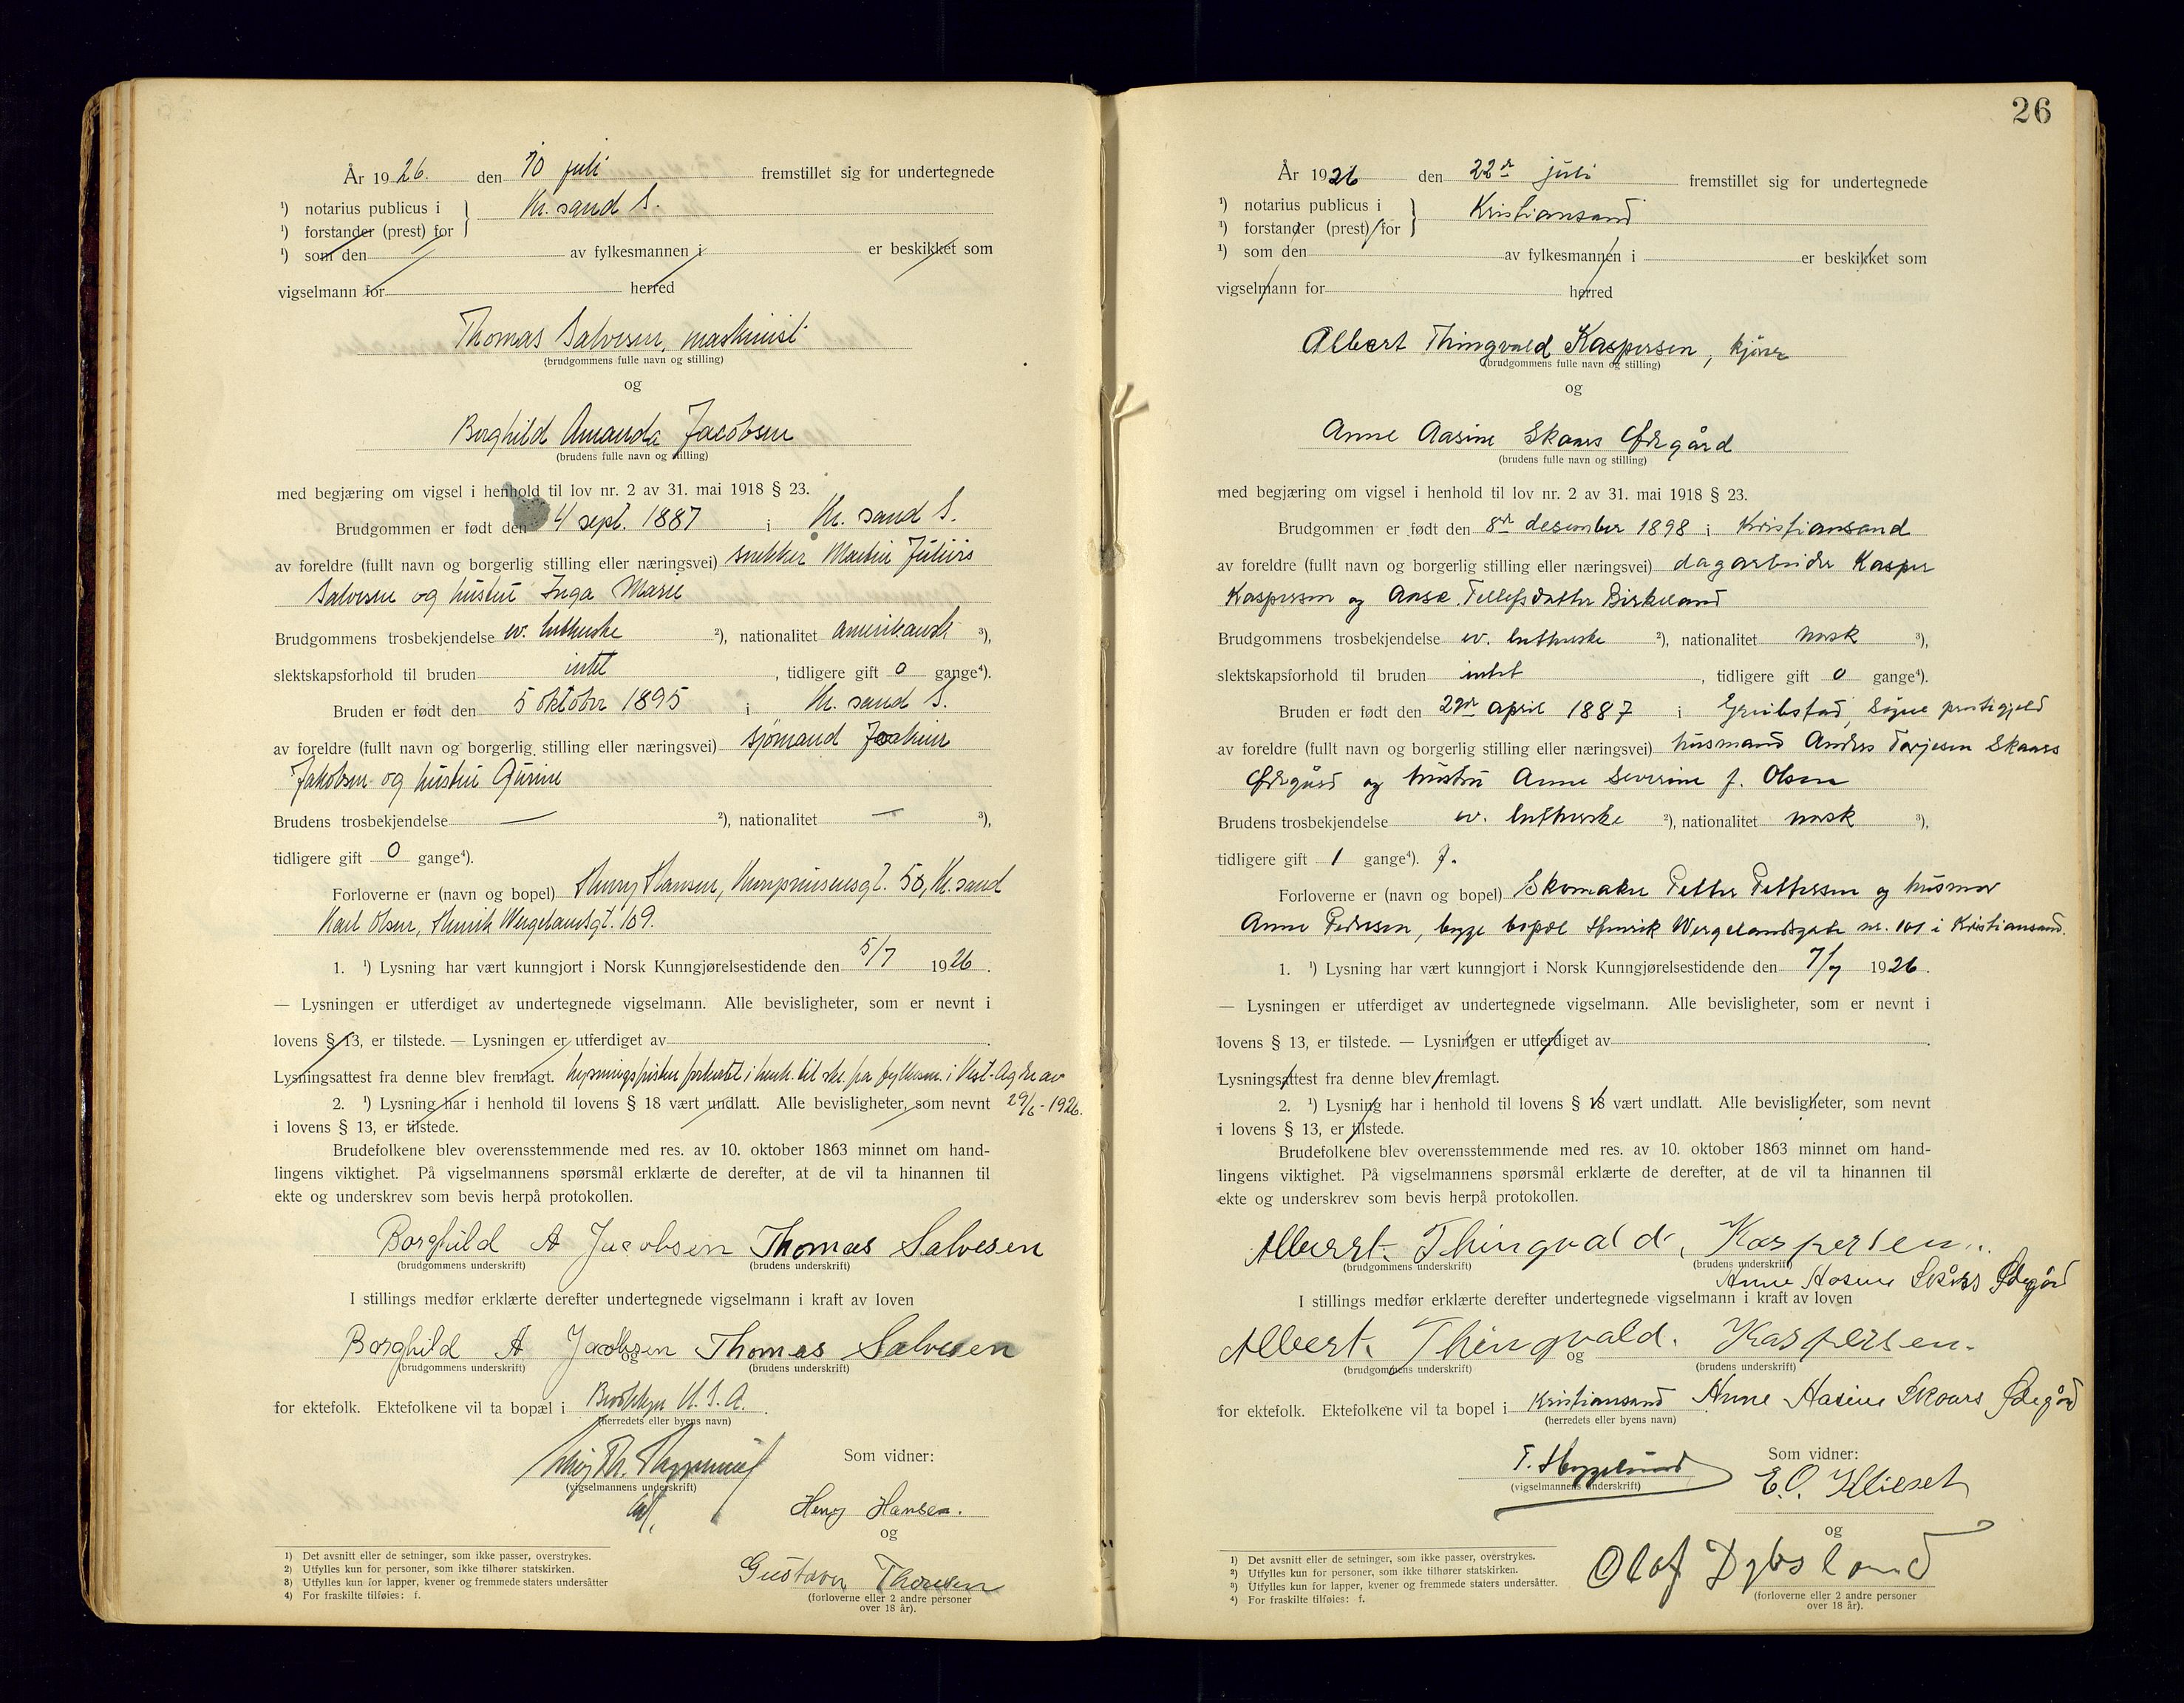 År 1926. den 10 juli fremstillet sig for undertegnede
¹) notarius publicus i Kr. sand S.
¹) forstander (prest) for
¹) som den av fylkesmannen i er beskikket som
vigselmann for herred
Thomas Salvesen, maskinist
(brudgommens fulle navn og stilling)
og
Borghild Amanda Jacobsen
(brudens fulle navn og stilling)
med begjæring om vigsel i henhold til lov nr. 2 av 31. mai 1918 § 23.
Brudgommen er født den 4 sept. 1887 i Kr. sand S.
av foreldre (fullt navn og borgerlig stilling eller næringsvei) snekker Martin Julius
Salvesen og hustru Inga Marie
Brudgommens trosbekjendelse ev. lutherske ²), nationalitet amerikansk ³),
slektskapsforhold til bruden intet, tidligere gift 0 gange⁴).
Bruden er født den 5 oktober 1895 i Kr. sand S.
av foreldre (fullt navn og borgerlig stilling eller næringsvei) sjømand Joakim
Jakobsen og hustru Gurine
Brudens trosbekjendelse — ²), nationalitet — ³),
tidligere gift 0 gange⁴).
Forloverne er (navn og bopel) Henry Hansen, Kronprinsensgt. 50, Kr. sand
Karl Olsen, Henrik Wergelandsgt. 109.
1. ¹) Lysning har vært kunngjort i Norsk Kunngjørelsestidende den 5/7 1926.
— Lysningen er utferdiget av undertegnede vigselmann. Alle bevisligheter, som er nevnt i
lovens § 13, er tilstede. — Lysningen er utferdiget av
Lysningsattest fra denne blev fremlagt. Lysningsfristen forkortet i henh. til skr. fra fylkesm. i Vest-Agder av
2. ¹) Lysning har i henhold til lovens § 18 vært undlatt. Alle bevisligheter, som nevnt 29/6-1926.
i lovens § 13, er tilstede.
Brudefolkene blev overensstemmende med res. av 10. oktober 1863 minnet om hand-
lingens viktighet. På vigselmannens spørsmål erklærte de derefter, at de vil ta hinannen til
ekte og underskrev som bevis herpå protokollen.
Borghild A Jacobsen Thomas Salvesen
(brudgommens underskrift) (brudens underskrift)
I stillings medfør erklærte derefter undertegnede vigselmann i kraft av loven
Borghild A Jacobsen Thomas Salvesen
og
(brudgommens underskrift) (brudens underskrift)
for ektefolk. Ektefolkene vil ta bopæl i Brooklyn U.S.A.
(herredets eller byens navn)
Som vidner:
(vigselmannens underskrift)
Henry Hansen.
og
Gustav Thorsen
(forloverne eller 2 andre personer
over 18 år).
1) Det avsnitt eller de setninger, som ikke passer, overstrykes.
2) Utfylles kun for personer, som ikke tilhører statskirken.
3) Utfylles kun for lapper, kvener og fremmede staters undersåtter
4) For fraskilte tilføies: f.
26
År 1926 den 22de juli fremstillet sig for undertegnede
¹) notarius publicus i Kristiansand
¹) forstander (prest) for
¹) som den av fylkesmannen i er beskikket som
vigselmann for herred
Albert Thingvald Kaspersen, kjører
(brudgommens fulle navn og stilling)
og
Anne Aasine Skaars Ødegård
(brudens fulle navn og stilling)
med begjæring om vigsel i henhold til lov nr. 2 av 31. mai 1918 § 23.
Brudgommen er født den 8de desember 1898 i Kristiansand
av foreldre (fullt navn og borgerlig stilling eller næringsvei) dagarbeider Kasper
Kaspersen og Aase Tellefsdatter Birkeland
Brudgommens trosbekjendelse ev. lutherske ²), nationalitet norsk ³),
slektskapsforhold til bruden intet, tidligere gift 0 gange⁴).
Bruden er født den 29de april 1887 i Søgne prestegjeld
av foreldre (fullt navn og borgerlig stilling eller næringsvei) husmand Anders Torjesen Skaars
Ødegård og hustru Anne Severine f. Olsen
Brudens trosbekjendelse ev. lutherske ²), nationalitet norsk ³),
tidligere gift 1 gange⁴). f.
Forloverne er (navn og bopel) Skomaker Petter Pettersen og husmor
Anne Pedersen, begge bopæl Henrik Wergelandsgate nr. 101 i Kristiansand.
1. ¹) Lysning har vært kunngjort i Norsk Kunngjørelsestidende den 7/7 1926.
— Lysningen er utferdiget av undertegnede vigselmann. Alle bevisligheter, som er nevnt i
lovens § 13, er tilstede. — Lysningen er utferdiget av
Lysningsattest fra denne blev fremlagt.
2. ¹) Lysning har i henhold til lovens § 18 vært undlatt. Alle bevisligheter, som nevnt
i lovens § 13, er tilstede.
Brudefolkene blev overensstemmende med res. av 10. oktober 1863 minnet om hand-
lingens viktighet. På vigselmannens spørsmål erklærte de derefter, at de vil ta hinannen til
ekte og underskrev som bevis herpå protokollen.
Albert. Thingvald. Kaspersen.
(brudgommens underskrift) (brudens underskrift)
Anne Aasine Skårs Ødegård
I stillings medfør erklærte derefter undertegnede vigselmann i kraft av loven
Albert. Thingvald. Kaspersen.
og
(brudgommens underskrift) (brudens underskrift)
for ektefolk. Ektefolkene vil ta bopel i Kristiansand Anne Aasine Skaars Ødegård
(herredets eller byens navn)
Som vidner:
T. Heggelund
(vigselmannens underskrift)
E. O.
og
Olaf Dybsland
(forloverne eller 2 andre personer
over 18 år).
1) Det avsnitt eller de setninger, som ikke passer, overstrykes.
2) Utfylles kun for personer, som ikke tilhører statskirken.
3) Utfylles kun for lapper, kvener og fremmede staters undersåtter.
4) For fraskilte tilføies: f.